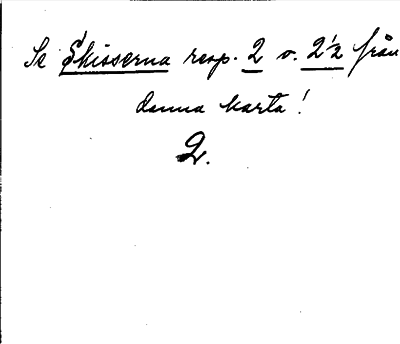 Se Skisserna resp. 2 o. 2½ från
denna karta!
2.